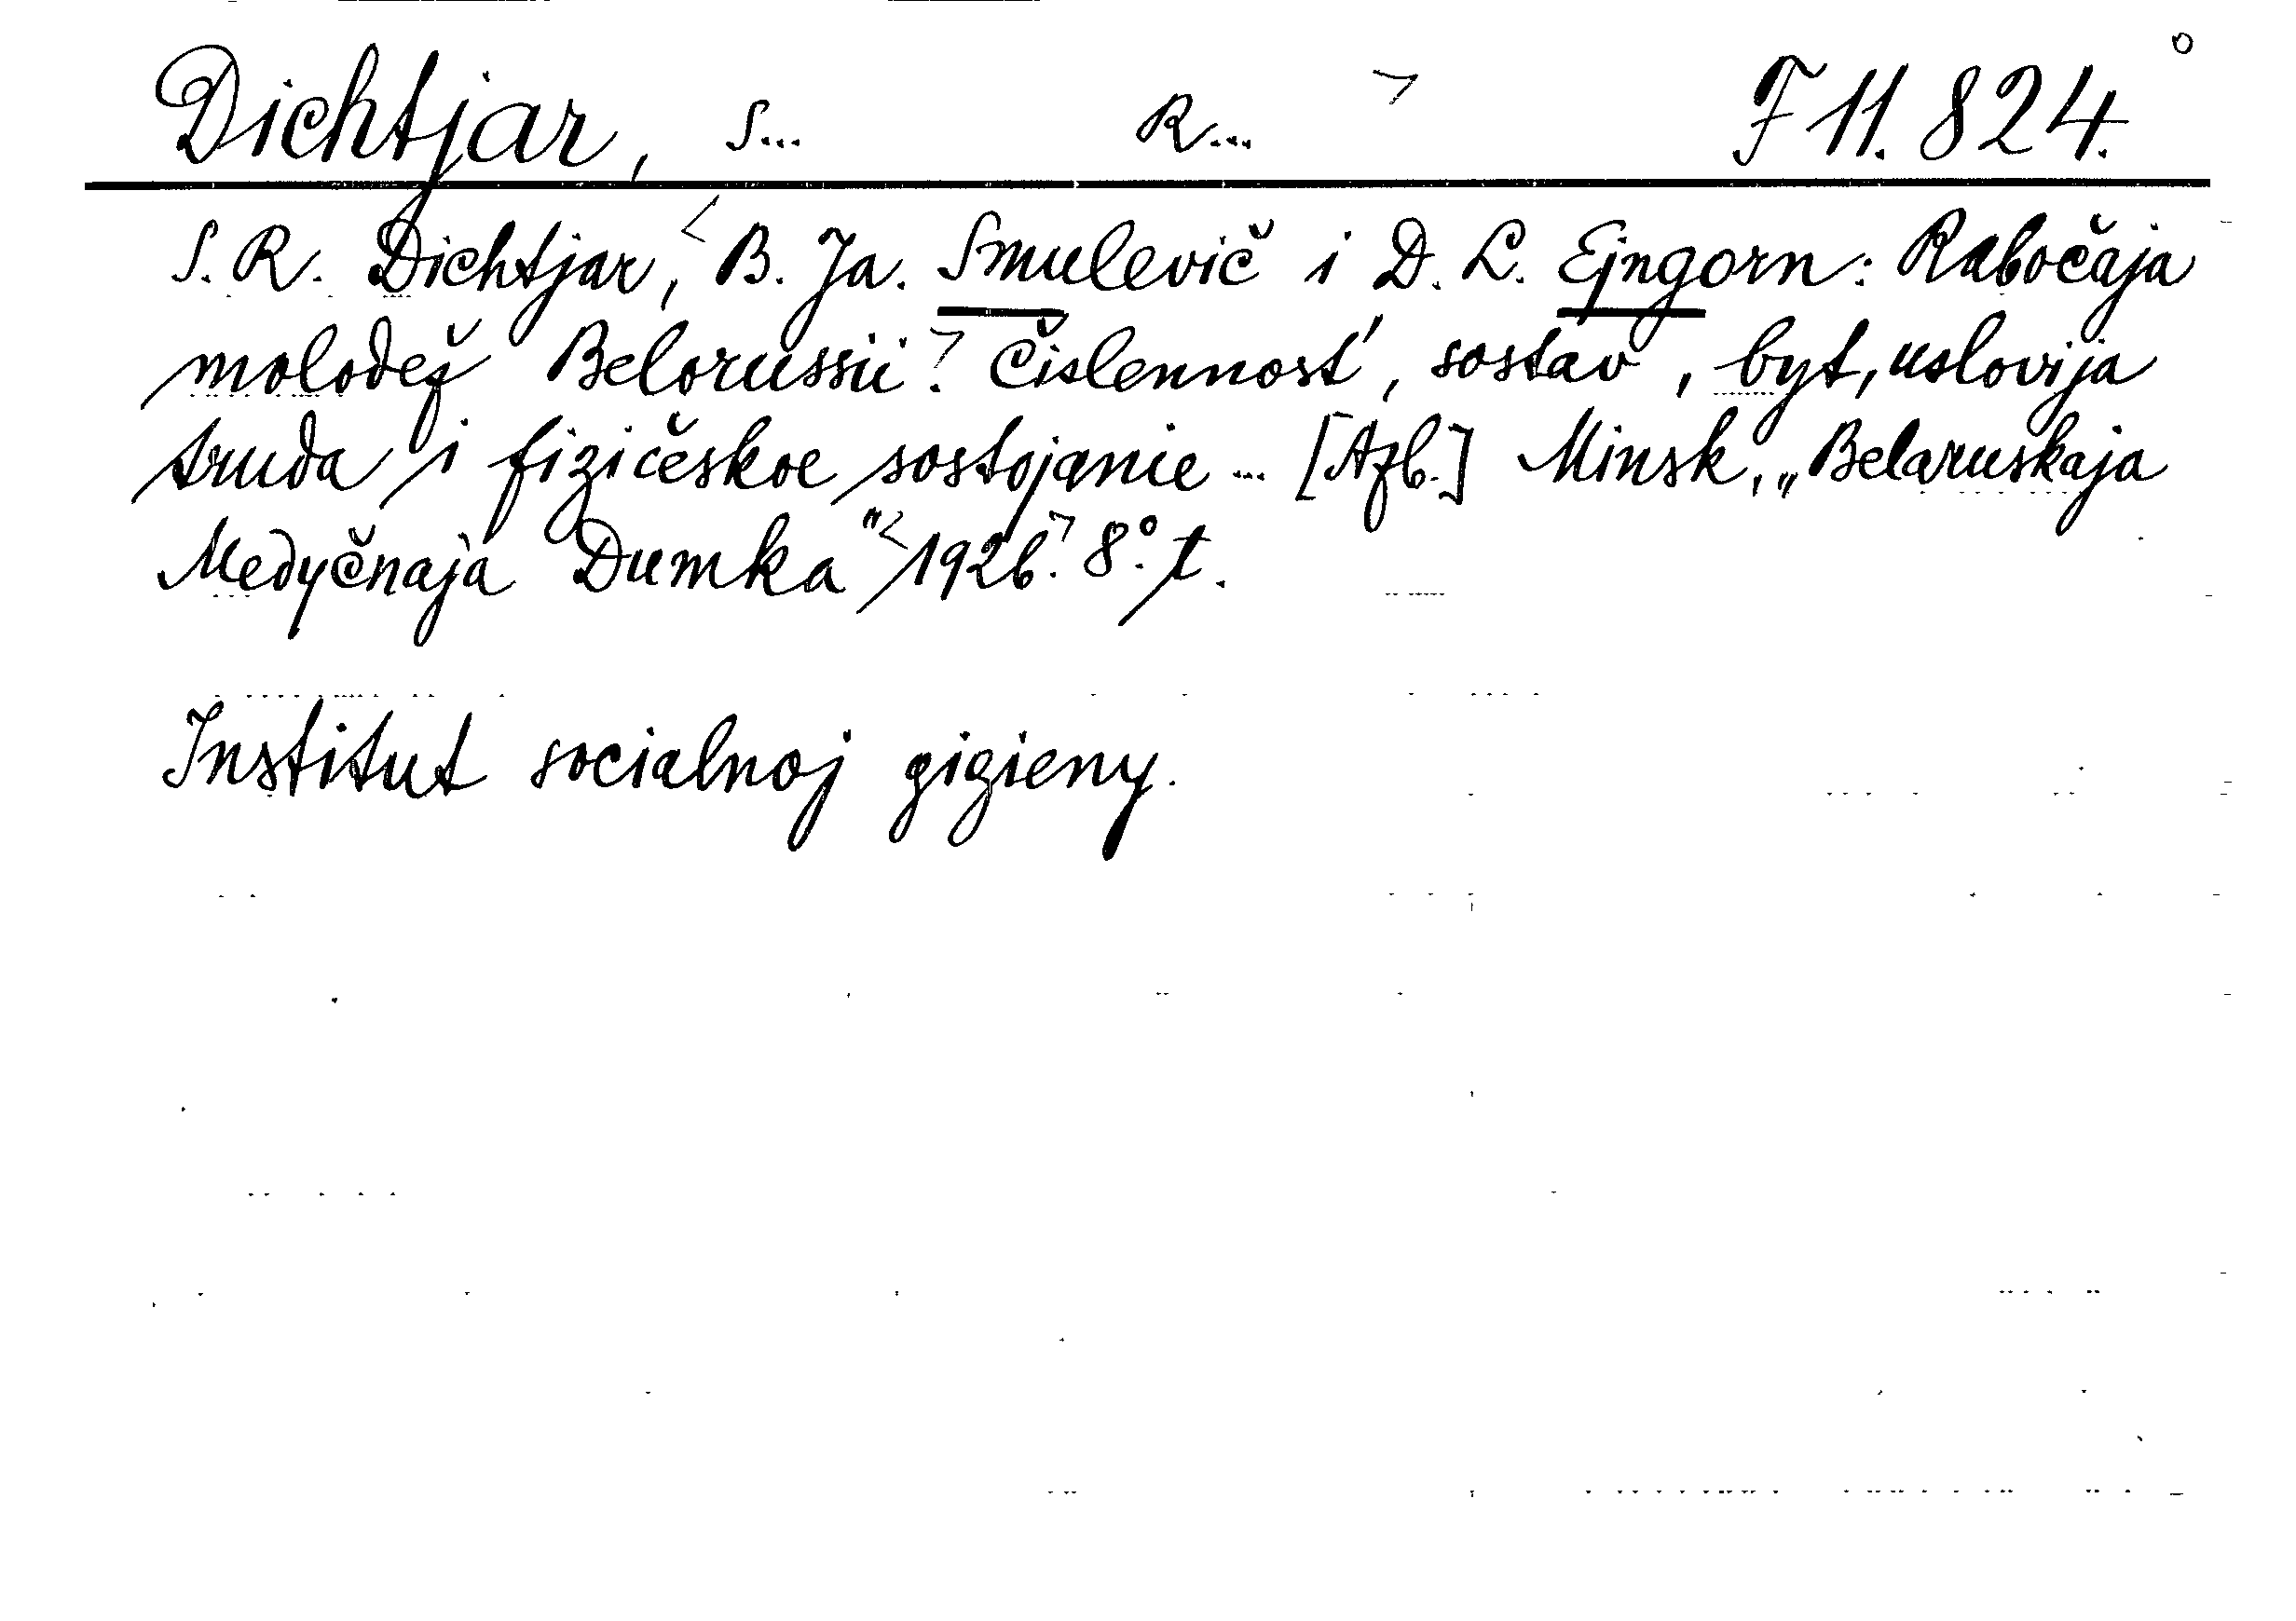 Dichtjar, S... R... > F 11.824.°
S. R. Dichtjar, < B. Ja. Smulevič i D. L. Ejngorn: Rabočaja
molodež Belorussii.> Čislennost', sostav, byt, uslovija
truda i fizičeskoe sostojanie ... [Azb.] Minsk, „Belaruskaja
Medyčnaja Dumka" < 1926.> 8°. t.
Institut socialnoj gigieny.